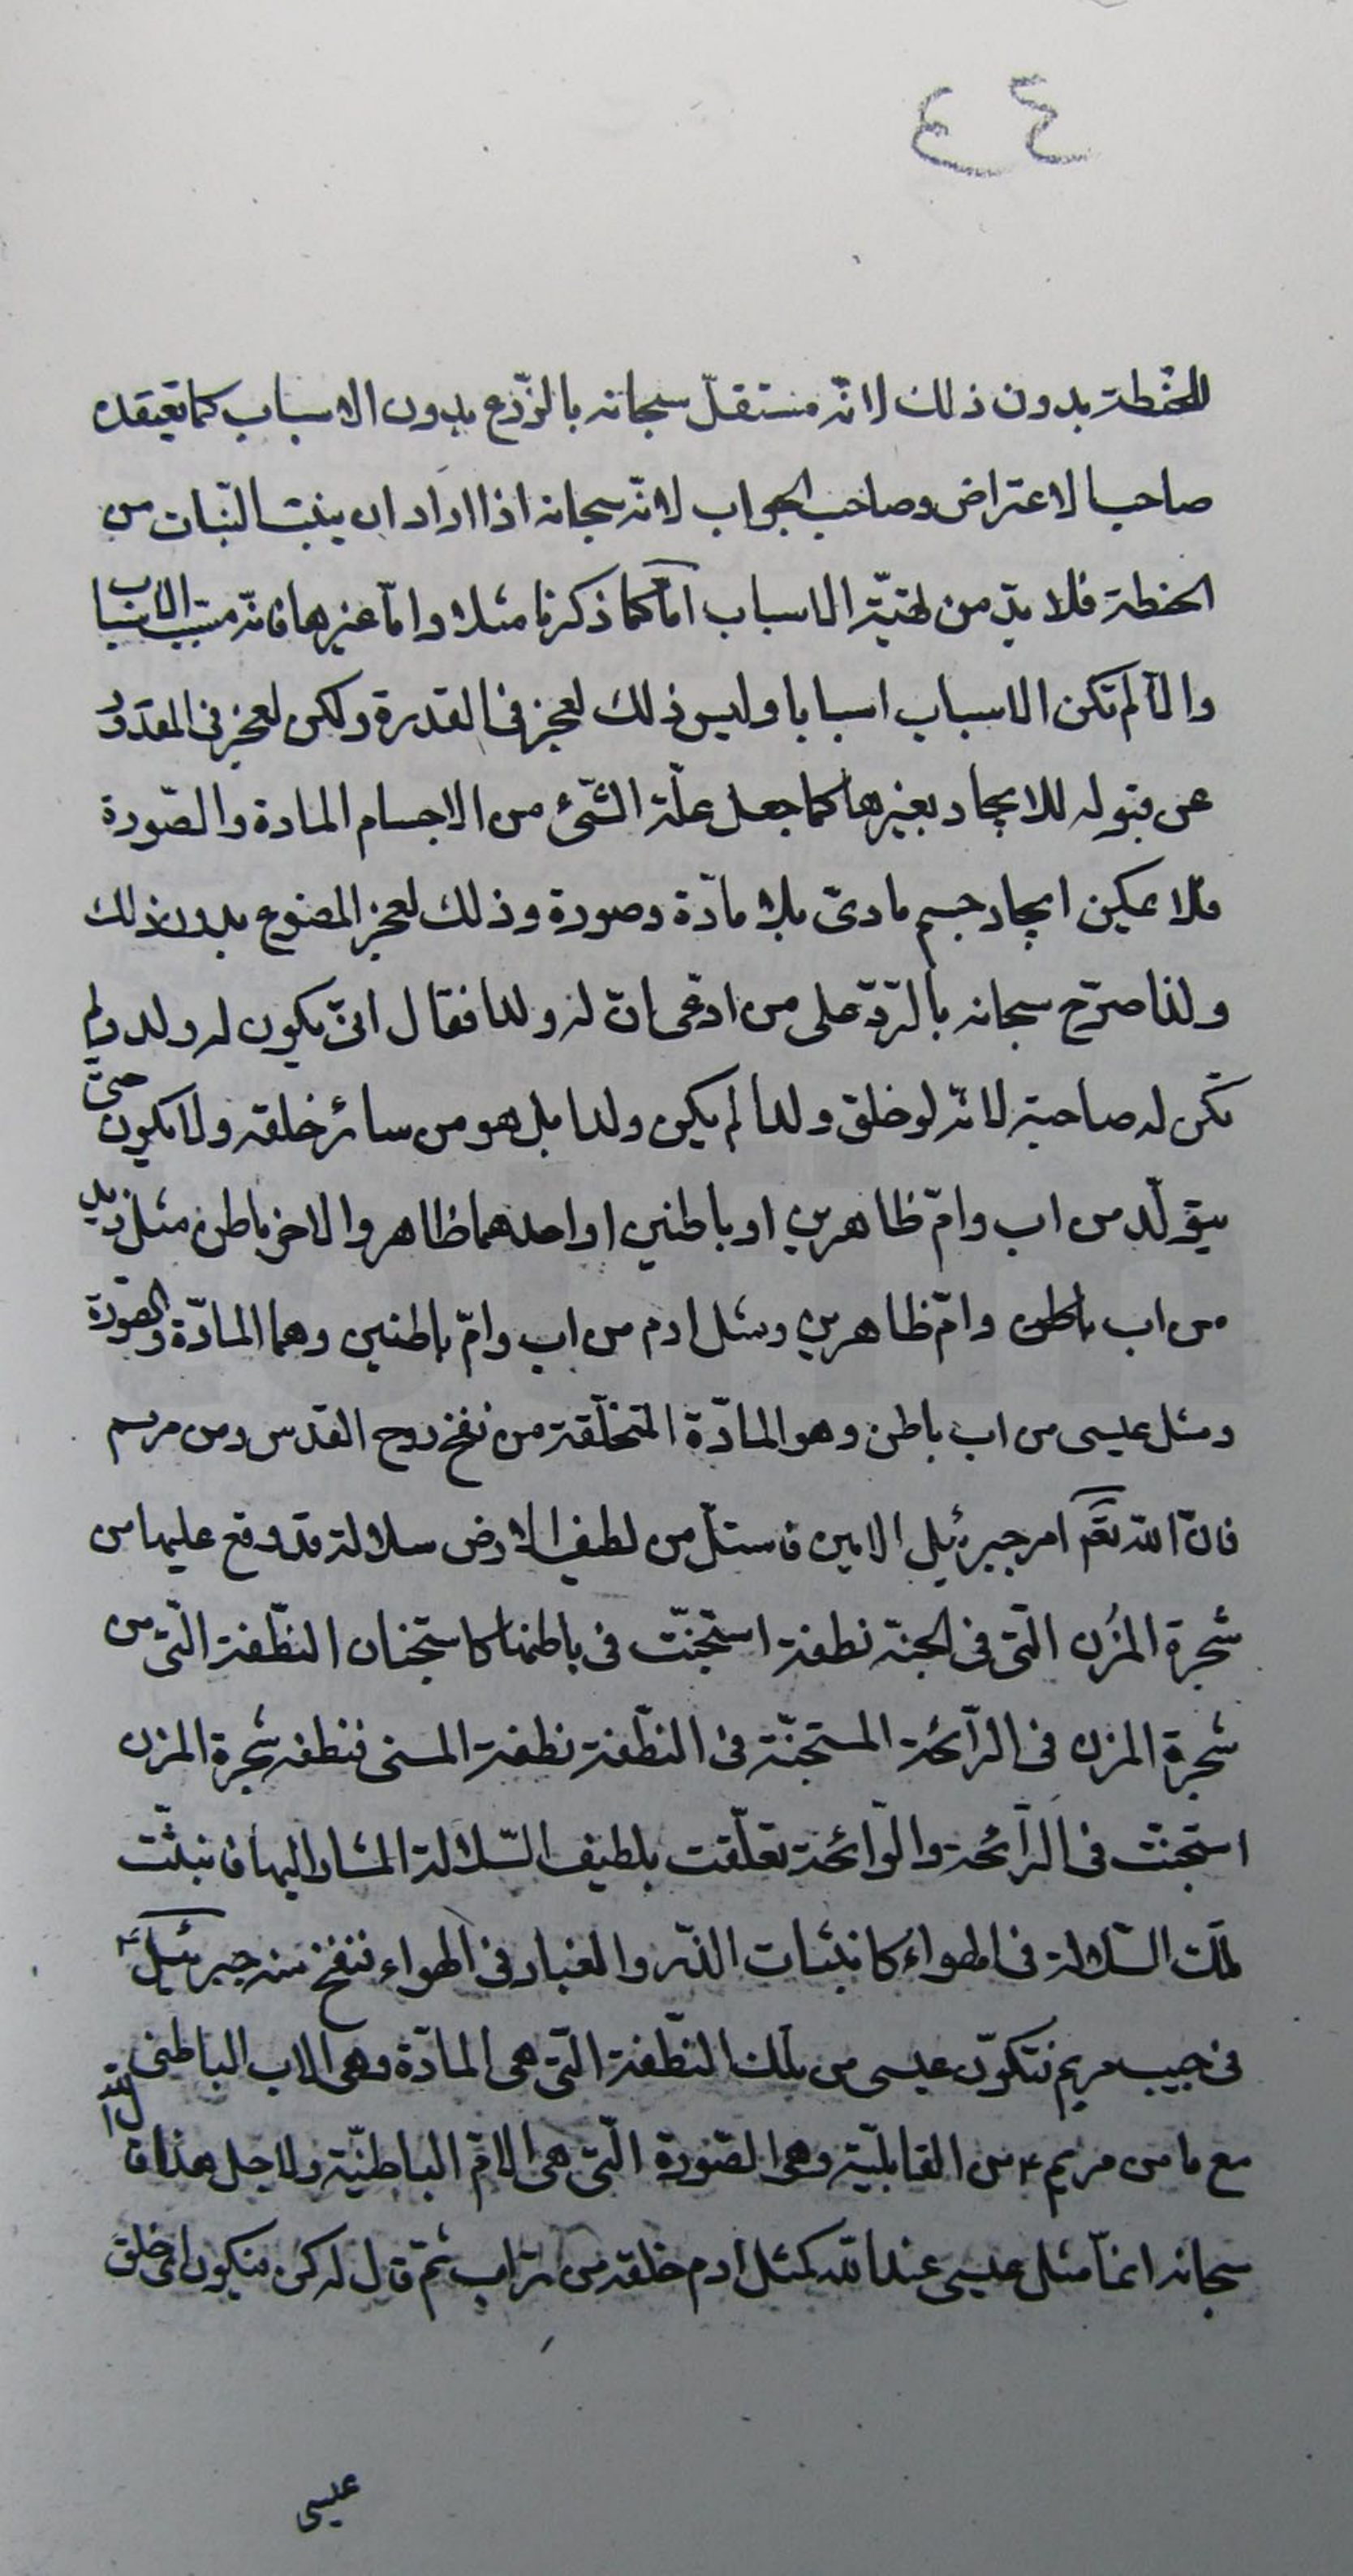 ٤٤
للحنطة بدون ذلك لانّه مستقلّ سبحانه بالزّرع بدون الاسباب كما يعتقده
صاحب الاعتراض وصاحب الجواب لانّه سبحانه اذا اراد ان ينبت النّبات من
الحنطة فلا بدّ من تهيّة الاسباب امّا كما ذكرنا مثلا وامّا غيرها فانّه مسبّب الاسباب
والّا لم تكن الاسباب اسبابا وليس ذلك لعجز فى القدرة ولكن لعجز فى المقدور
عن قبوله للايجاد بغيرها كما جعل علّة الشّئ من الاجسام المادة والصّورة
فلا يمكن ايجاد جسم مادىّ بلا مادّة وصورة وذلك لعجز المصنوع بدون ذلك
ولذا صرّح سبحانه بالرّدّ على من ادّعى انّ له ولدا فقال انىّ يكون له ولد ولم
تكن له صاحبة لانّه لو خلق ولدا لم يكن ولدا بل هو من سائر خلقه ولا يكون حتىّ
يتولّد من اب وامّ ظاهرين او باطنين او احدهما ظاهر والاخر باطن مثل زيد
من اب باطن وامّ ظاهرين ومثل ادم من اب وامّ باطنين وهما المادّة والصّورة
ومثل عيسى من اب باطن وهو المادّة المتخلّقة من نفخ روح القدس ومن مريم
فانّ اللّه تعم امر جبرئيل الامين فاستلّ من لطيف الارض سلالة قد وقع عليها من
شجرة المُزن الّتى فى الجنة نطفة استجنّت فى باطنها كاستجنان النّطفة الّتى من
شجرة المزن فى الرّائحة المستجنّة فى النّطفة نطفة المنى فنطفة شجرة المزن
استجنّت فى الرّائحة والرّائحة تعلّقت بلطيف السّلالة المشار اليها فانبثّت
تلك السّلالة فى الهواء كانبثاث الذّر والغبار فى الهواء فنفخ منه جبرئيل ع
فى جيب مريم فتكوّن عيسى من تلك النّطفة الّتى هى المادّة وهى الاب الباطنى
مع ما من مريم ع من القابليّة وهى الصّورة الّتى هى الامّ الباطنيّة ولاجل هذا قال اللّه
سبحانه انمّا مثل عيسى عند اللّه كمثل ادم خلقه من تراب ثمّ قال له كن فيكون اى خلق
عيسى